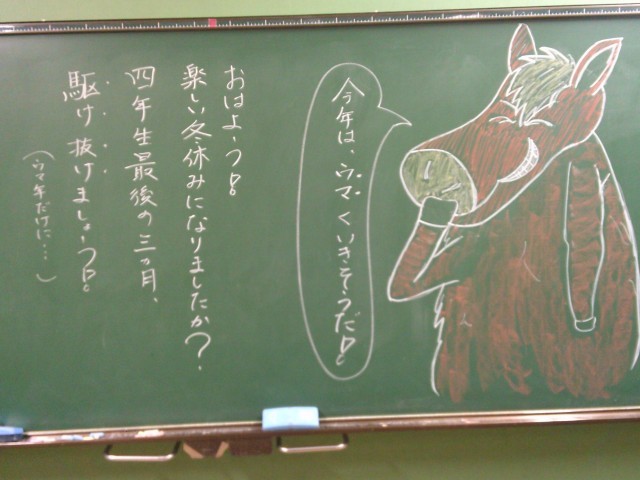 今年は、ウマくいきそうだ!
おはよう!
楽しい冬休みになりましたか?
四年生最後の三ヶ月、
駆け抜けましょう!
(ウマ年だけに…)